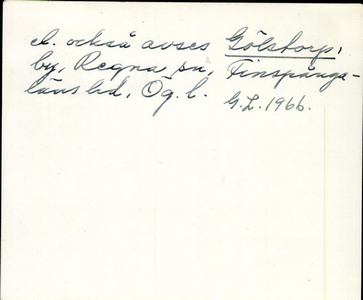 el. också avses Gölstorp,
by, Regna sn, Finspånga-
läns hd, Ög. l.
G.L. 1966.